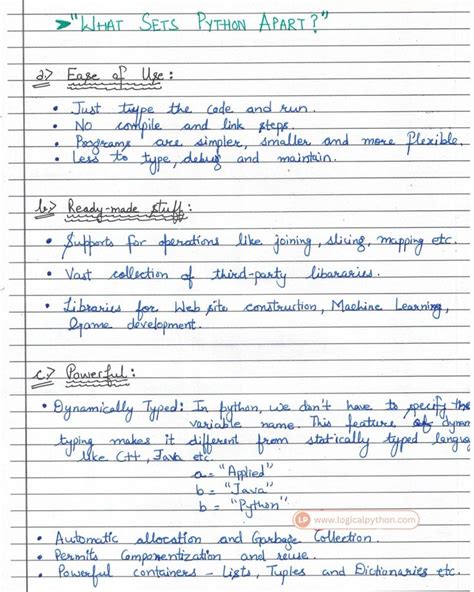 ➢"WHAT SETS PYTHON APART?"
a) Ease of Use :
• Just type the code and run.
• No compile and link steps.
• Programs are simpler, smaller and more flexible.
• Less to type, debug and maintain.
b) Ready-made stuff:
• Supports for operations like joining, slicing, mapping etc.
• Vast collection of third-party libararies.
• Libraries for Web site construction, Machine Learning,
Game development.
c) Powerful :
• Dynamically Typed: In python, we don't have to specify the
variable name. This feature of dynm
typing makes it different from statically typed languag
like C++, Java etc.
a = "Applied"
b = "Java"
b = "Python"
LP www.logicalpython.com
• Automatic allocation and Garbage Collection.
• Permits Componentization and reuse.
• Powerful containers - Lists, Tuples and Dictionaries etc.